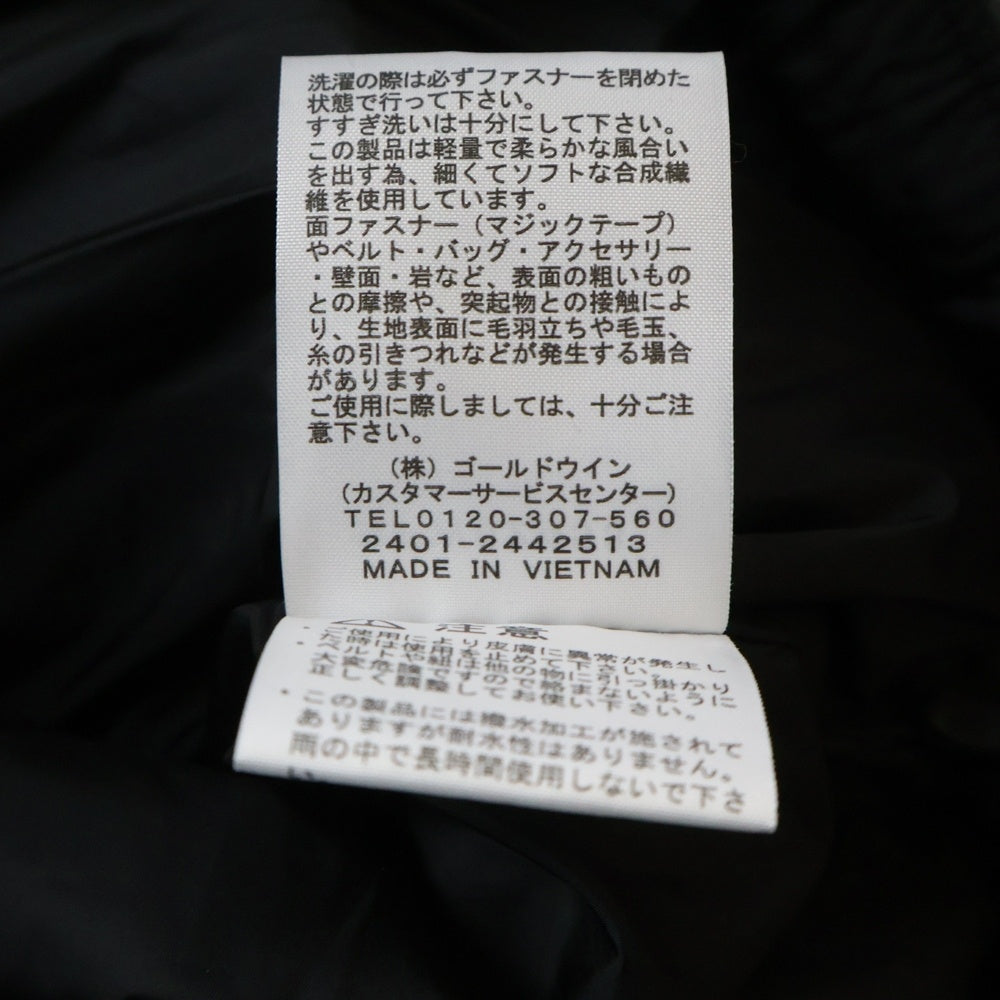 洗濯の際は必ずファスナーを閉めた
状態で行って下さい。
すすぎ洗いは十分にして下さい。
この製品は軽量で柔らかな風合い
を出す為、細くてソフトな合成繊
維を使用しています。
面ファスナー（マジックテープ）
やベルト・バッグ・アクセサリー
・壁面・岩など、表面の粗いもの
との摩擦や、突起物との接触によ
り、生地表面に毛羽立ちや毛玉、
糸の引きつれなどが発生する場合
があります。
ご使用に際しましては、十分ご注
意下さい。
（株）ゴールドウイン
（カスタマーサービスセンター）
TEL0120-307-560
2401-2442513
MADE IN VIETNAM
注意
・ご使用により皮膚に異常が発生し
た時は使用を止めて下さい。
・ベルトや紐は他の物に引っ掛かり
大変危険ですので絡まないように
正しく調整してお使い下さい。
・この製品には撥水加工が施されて
ありますが耐水性はありません。
雨の中で長時間使用しないで下さ